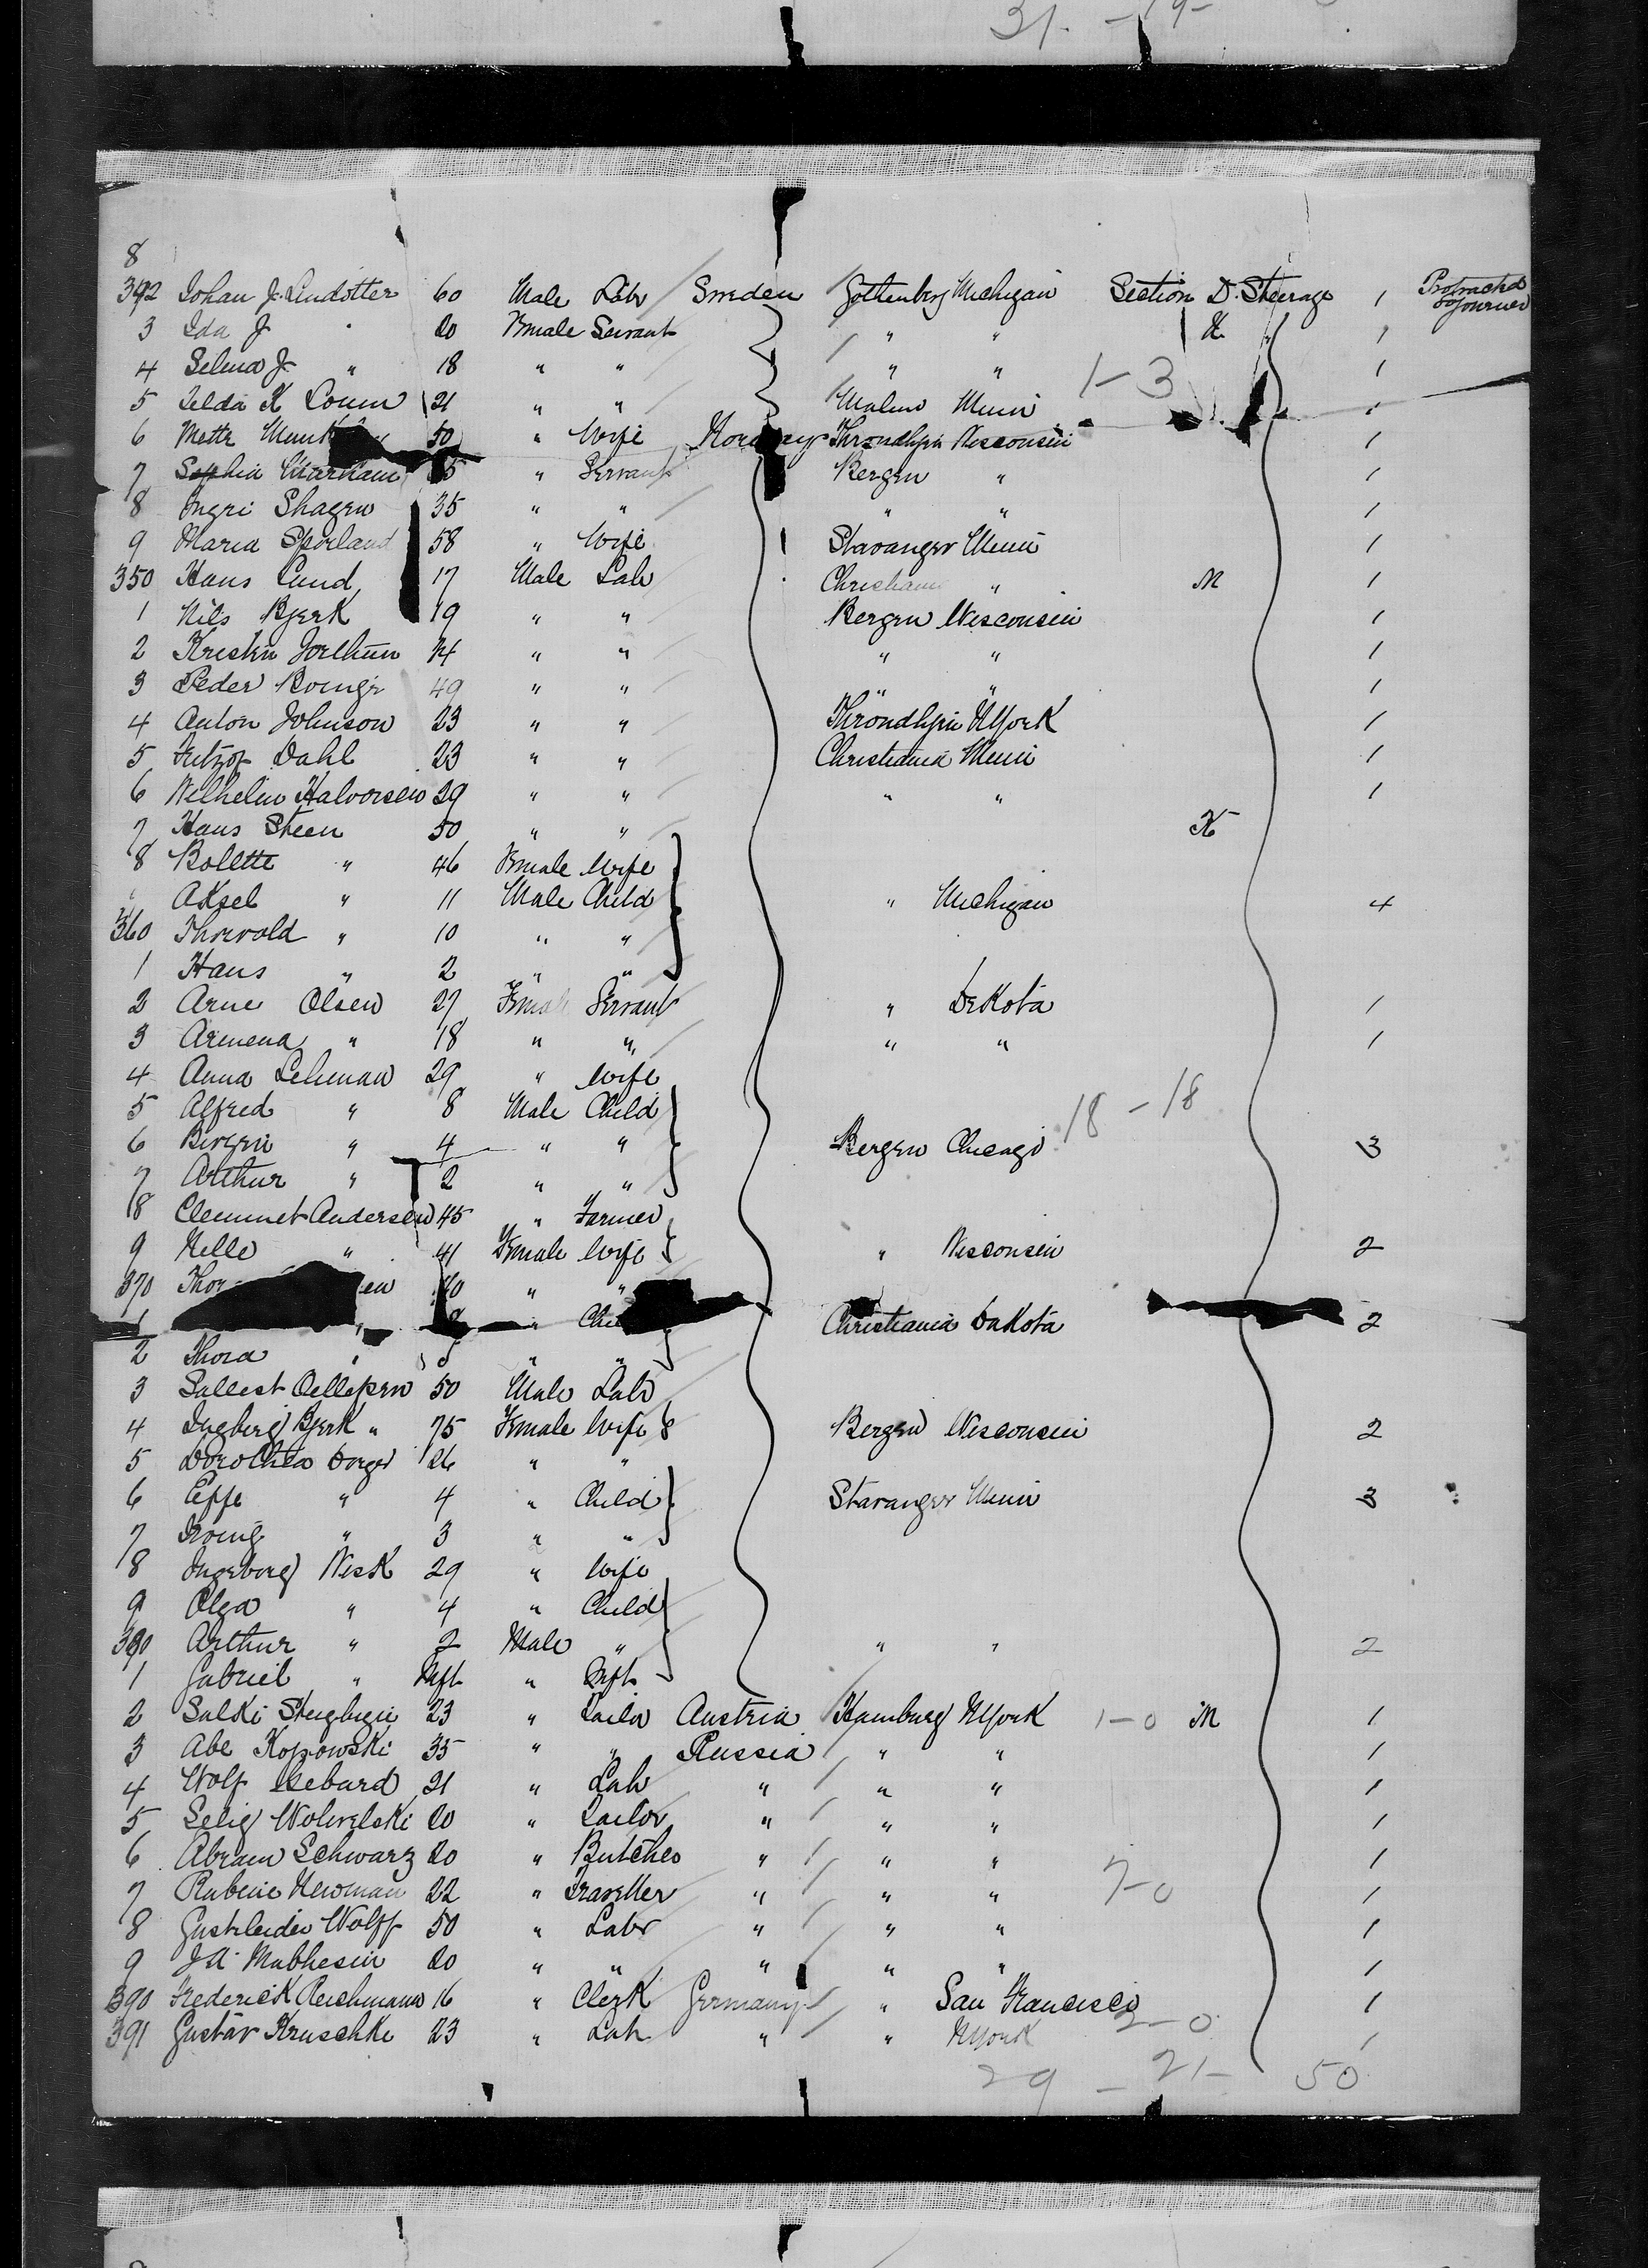 31 - 19 -
8
342 Johan J. Lindotter 60 Male Labr Sweden Gothenberg Michigan Section D. Steerage 1 Protracted Sojourner
3 Ida J " 20 Female Servant " " K " 1
4 Selma J " 18 " " " " 1
1 - 3
5 Selda K 21 " " Malmo Minn 1
6 Mette Munk 50 " Wife Norway Throndhjem Wisconsin 1
7 Sophia " Servant Bergen " 1
8 Ingri Shagen 35 " " " " 1
9 Maria Sporland 58 " Wife Stavanger Minn 1
350 Hans Lund 17 Male Labr Christiania " M 1
1 Nils Bjerk 19 " " Bergen Wisconsin 1
2 Kristin 24 " " " " 1
3 Peder 49 " " " " 1
4 Anton Johnson 23 " " Throndhjem NYork 1
5 Fritzof Dahl 23 " " Christiania Minn 1
6 Wilhelm Halvorsen 29 " " " " 1
7 Hans Steen 50 " " K
8 Bolette " 46 Female Wife
" Aksel " 11 Male Child " Michigan 4
360 Thorvald " 10 " "
1 Hans " 2 " "
2 Arne Olsen 27 Female Servant " Dekota 1
3 Armena " 18 " " " " 1
4 Anna Lehman 29 " Wife
18 - 18
5 Alfred " 8 Male Child
6 " 4 " " Bergen Chicago 3
7 Arthur " 2 " "
8 Clemmet Andersen 45 " Farmer
9 Nelle " 41 Female Wife " Wisconsin 2
370 Thor en 40 " "
1 " 8 " Chi Christiania Dakota 2
2 Thora " 5 " "
3 50 Male Labr
4 Ingberg Bjerk " 75 Female Wife Bergen Wisconsin 2
5 Dorothea 26 " "
6 " 4 " Child Stavanger Minn 3
7 Irving " 3 " "
8 Ingeborg Wisk 29 " Wife
9 Olga " 4 " Child
380 Arthur " 2 Male " " " 2
1 Gabriel " Inft " Inft
2 Salki 23 " Tailor Austria Hamburg NYork 1-0 M 1
3 Abe Kopowski 35 " " Russia " " 1
4 Wolf 21 " Labr " " " 1
5 Selig Wolwelski 20 " Tailor " " " 1
6 Abram Schwarz 20 " Butcher " " " 1
7 Rubene Newman 22 " Traveller " " " 7-0 1
8 Wolff 50 " Labr " " " 1
9 J A 20 " " " " " 1
390 Frederick Reichmann 16 " Clerk Germany " San Francisco 1
391 Gustav Kruschke 23 " Labr " " NYork 2-0 1
29 - 21 - 50